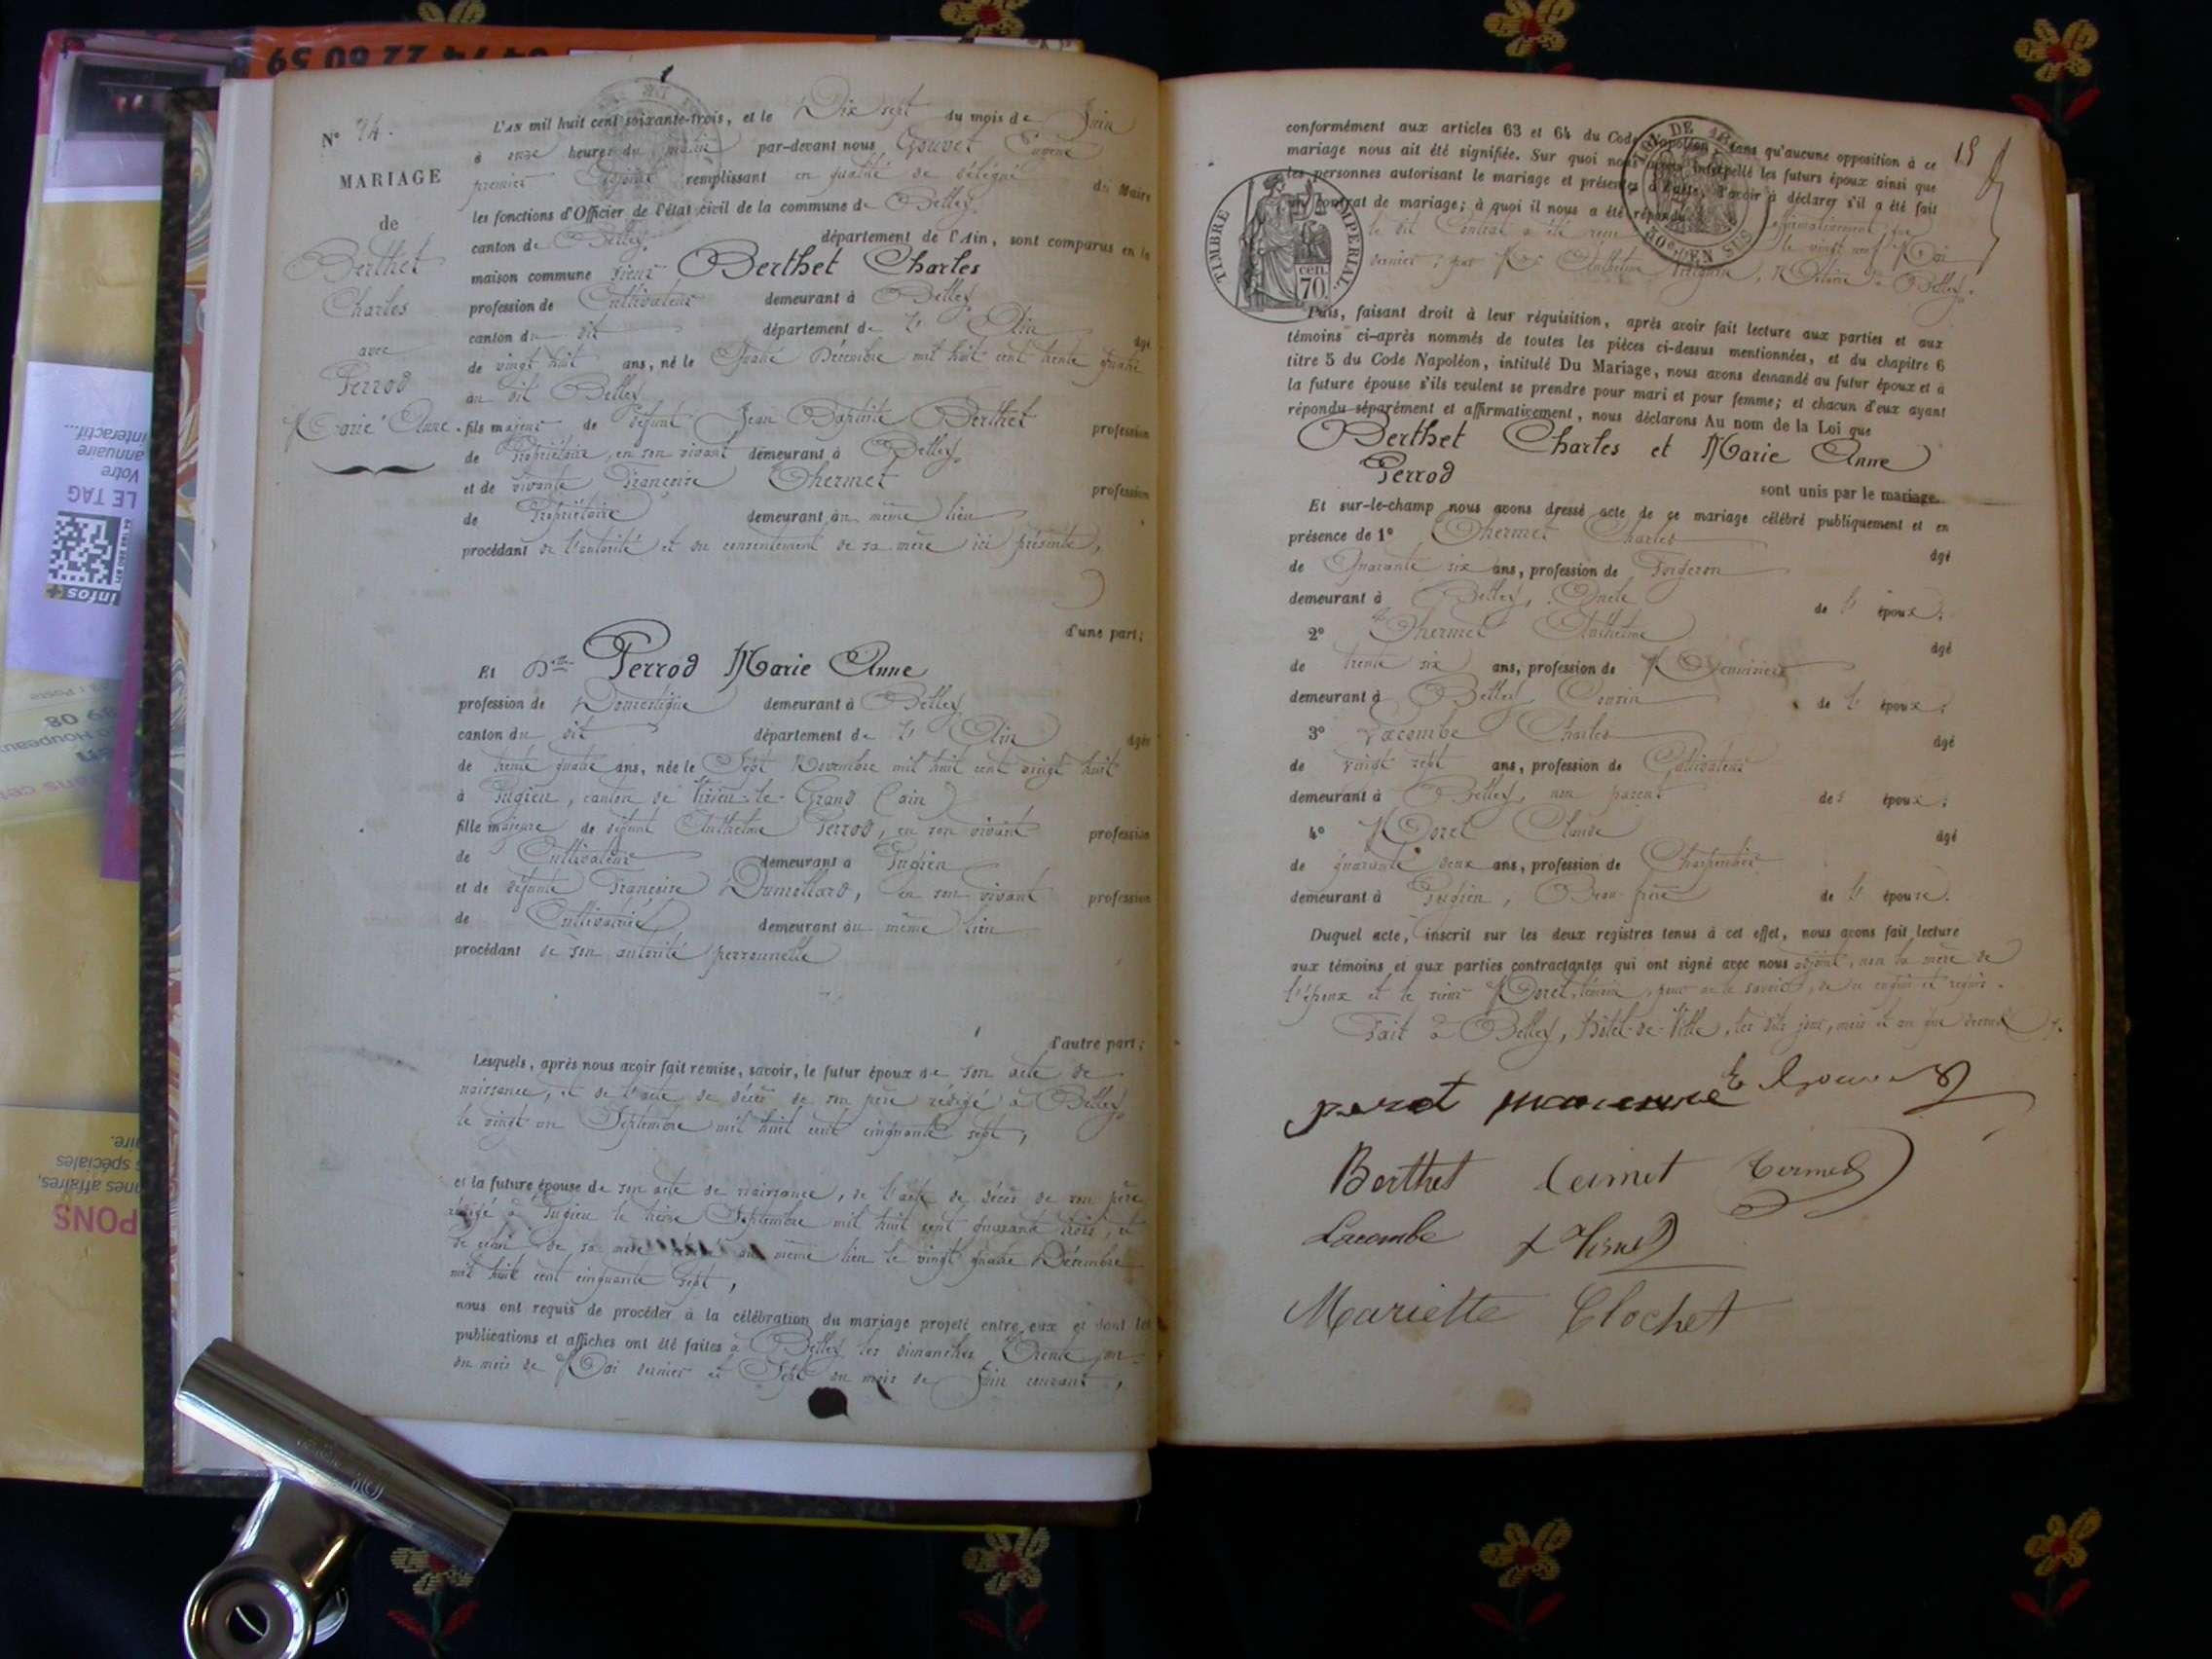 N° 14.
MARIAGE
de
Berthet
Charles
avec
Perrod
Marie Anne.
L'AN mil huit cent soixante-trois, et le Dix sept du mois de Juin
à onze heures du matin par-devant nous Gouvet
premier Adjoint remplissant en qualité de délégué du Maire
les fonctions d'Officier de l'état civil de la commune de Belley,
canton de Belley, département de l'Ain, sont comparus en la
maison commune sieur Berthet Charles
profession de Cultivateur demeurant à Belley,
canton du dit département de l' Ain âgé
de vingt huit ans, né le Quatre Décembre mil huit cent trente quatre
au dit Belley
fils majeur de défunt Jean Baptiste Berthet profession
de Propriétaire, en son vivant demeurant à Belley,
et de vivante Françoise Thermet profession
de Propriétaire demeurant au même lieu
procédant de l'autorité et du consentement de sa mère ici présente,
d'une part;
Et Dlle Perrod Marie Anne
profession de Domestique demeurant à Belley,
canton du dit département de l' Ain âgée
de trente quatre ans, née le Sept Novembre mil huit cent vingt huit
à Pugieu, canton de Virieu-le-Grand (ain)
fille majeure de défunt Anthelme Perrod, en son vivant profession
de Cultivateur demeurant à Pugieu
et de défunte Françoise Dumollard, en son vivant profession
de Cultivatrice demeurant au même lieu
procédant de son autorité personnelle
d'autre part;
Lesquels, après nous avoir fait remise, savoir, le futur époux de son acte de
naissance, et de l'acte de décès de son père rédigé à Belley,
le vingt un Septembre mil huit cent cinquante sept,
et la future épouse de son acte de naissance, de l'acte de décès de son père
rédigé à Pugieu le Septembre mil huit cent quarante trois, et
de celui de sa mère au même lieu le vingt quatre Décembre
mil huit cent cinquante sept,
nous ont requis de procéder à la célébration du mariage projeté entre eux et dont les
publications et affiches ont été faites à Belley les dimanches Trente un
du mois de Mai dernier et Sept du mois de Juin courant,
15
TIMBRE IMPERIAL
70 cen.
conformément aux articles 63 et 64 du Code Napoléon, sans qu'aucune opposition à ce
mariage nous ait été signifiée. Sur quoi nous avons interpellé les futurs époux ainsi que
les personnes autorisant le mariage et présentes à l'acte, d'avoir à déclarer s'il a été fait
un contrat de mariage; à quoi il nous a été répondu affirmativement, que
le dit Contrat a été reçu le vingt neuf Mai
dernier, par Me Anthelme Notaire à Belley.
Puis, faisant droit à leur réquisition, après avoir fait lecture aux parties et aux
témoins ci-après nommés de toutes les pièces ci-dessus mentionnées, et du chapitre 6
titre 5 du Code Napoléon, intitulé Du Mariage, nous avons demandé au futur époux et à
la future épouse s'ils veulent se prendre pour mari et pour femme; et chacun d'eux ayant
répondu séparément et affirmativement, nous déclarons Au nom de la Loi que
Berthet Charles et Marie Anne
Perrod
sont unis par le mariage.
Et sur-le-champ nous avons dressé acte de ce mariage célébré publiquement et en
présence de 1° Thermet Charles âgé
de Quarante six ans, profession de Forgeron
demeurant à Belley, Oncle de l' époux;
2° Thermet Anthelme âgé
de trente six ans, profession de Menuisier
demeurant à Belley, Cousin de l' époux;
3° Lacombe Charles âgé
de vingt sept ans, profession de Cultivateur
demeurant à Belley, non parent des époux;
4° Moret Claude âgé
de quarante deux ans, profession de Charpentier
demeurant à Pugieu, Beau-frère de l' épouse.
Duquel acte, inscrit sur les deux registres tenus à cet effet, nous avons fait lecture
aux témoins et aux parties contractantes qui ont signé avec nous adjoint, non la mère de
l'époux et le sieur Moret, témoin, pour ne le savoir, de ce enquis et requis.
Fait à Belley, Hôtel-de-Ville, les dits jour, mois et an que dessus
perot marianne E Gouvet
Berthet termet
Lacombe
Mariette Clochet